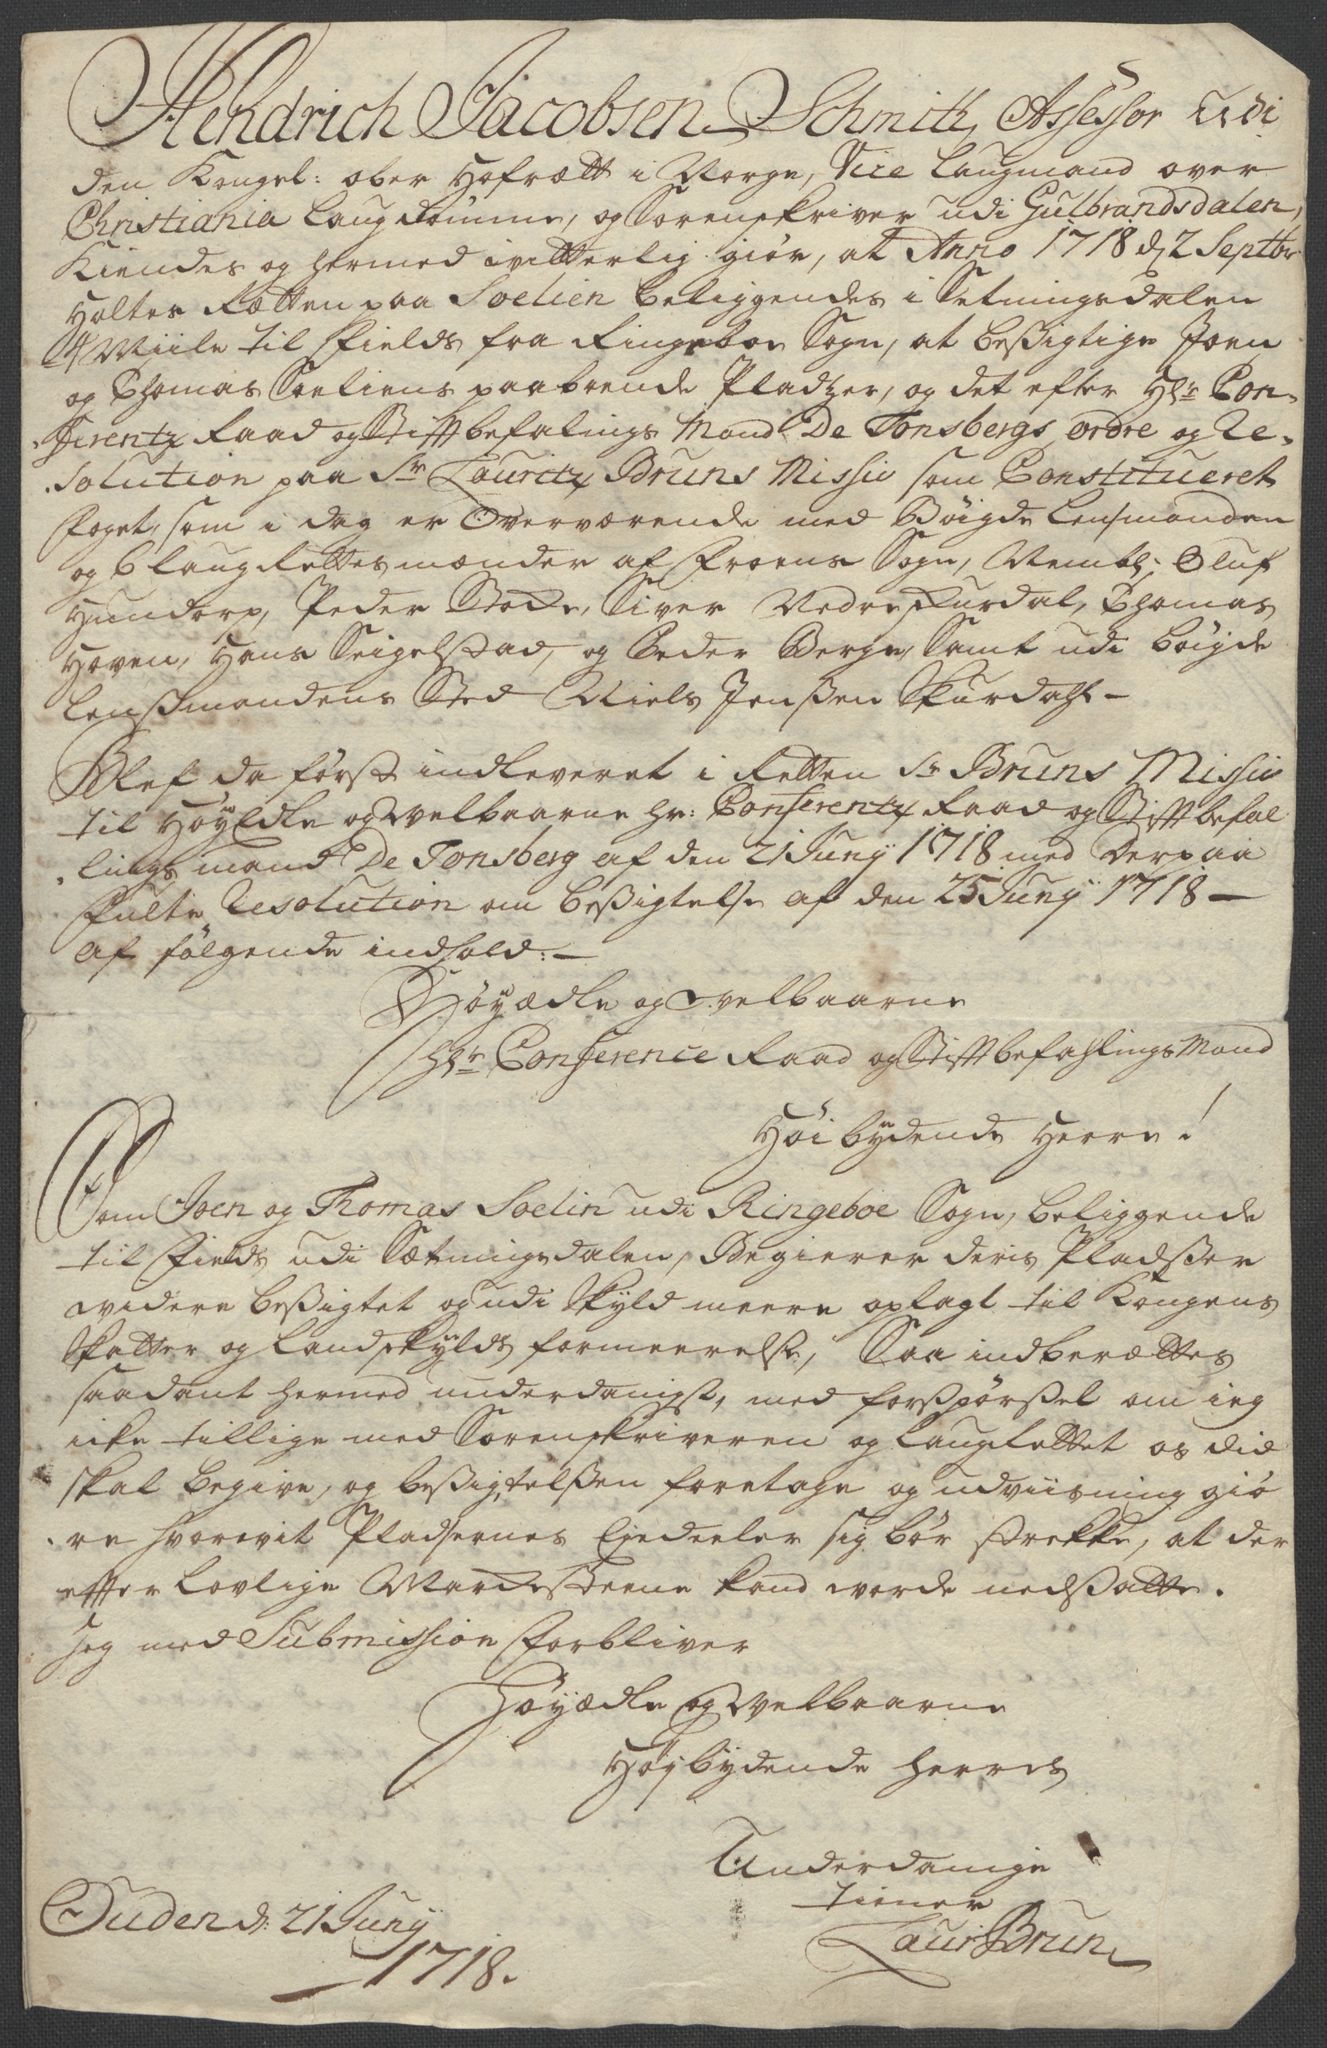 Hendrich Jacobsen Schmith, Assessor udi
den Kongel: ober Hofrætt i Norge, Vice Laugmand over
Christiania Laugdømme, og Sorenskriver udi Gulbrandsdalen,
Kiendes og hermed witterlig giør, at Anno 1718 d 2 Septbr
Holtes Rætten paa Soelien beliggendes i Setningsdalen
4 Miile til Fields fra Ringeboe Sogn, at beßigtige Joen
og Thomas Soeliens paaboende Pladtzer, og det efter Hr: Con-
ferentz Raad og Stiftbefalings Mand De Tonsbergs ordre og Re-
solution paa Sr Lauritz Bruns Missiv som Constitueret
Foget, som i dag er Overværende med Bøigde Lensmanden
og 6 Laug Rettesmænder af Froens Sogn, Nembl: Oluf
Hundorp, Peder Bode, Siver Nedre Furdal, Thomas
Hoven, Hans Seigelstad, og Peder Berge, Samt udi bøigde
Lenßmandens Sted Niels Jenßen Skurdahl -
Blef da først indleveret i Retten Sr Bruns Missiv
til Høyædle og velbaarne hr: Conferentz Raad og Stiftbefal
lings mand De Tonsberg af den 21 Junÿ 1718 med Derpaa
Fulte Resolution om beßigtelse af den 25 Junÿ 1718 —
af følgende indhold: —
Høÿædle og velbaarne
Hr: Conference Raad og Stiftbefahlings Mand
Høibÿdende Herre!
Som Joen og Thomas Soelin udi Ringeboe Sogn, beliggende
til Fields udi Sætningsdalen, Begierer deris Pladßer
widere beßigtet og udi Skÿld meere oplagt til Kongens
Skatter og Landskÿlds formeerelse, Saa indberættes
saadant hermed underdanigst, med forßpørßel om ieg
icke tillige med Sorenskriveren og Laugrettet os did
skal begive, og beßigtelßen foretage og udviisning giø
re hvorvit Pladsernes Ejedeeler sig bør strekke, at der
effter Lovlige Marckesteene kand worde nedsatte.
Jeg med Submission Forbliver
Høÿædle og Welbaarne
Højbÿdende herres
Underdanige
tiener
Laur: Brun
Suden d: 21 Junÿ
1718.